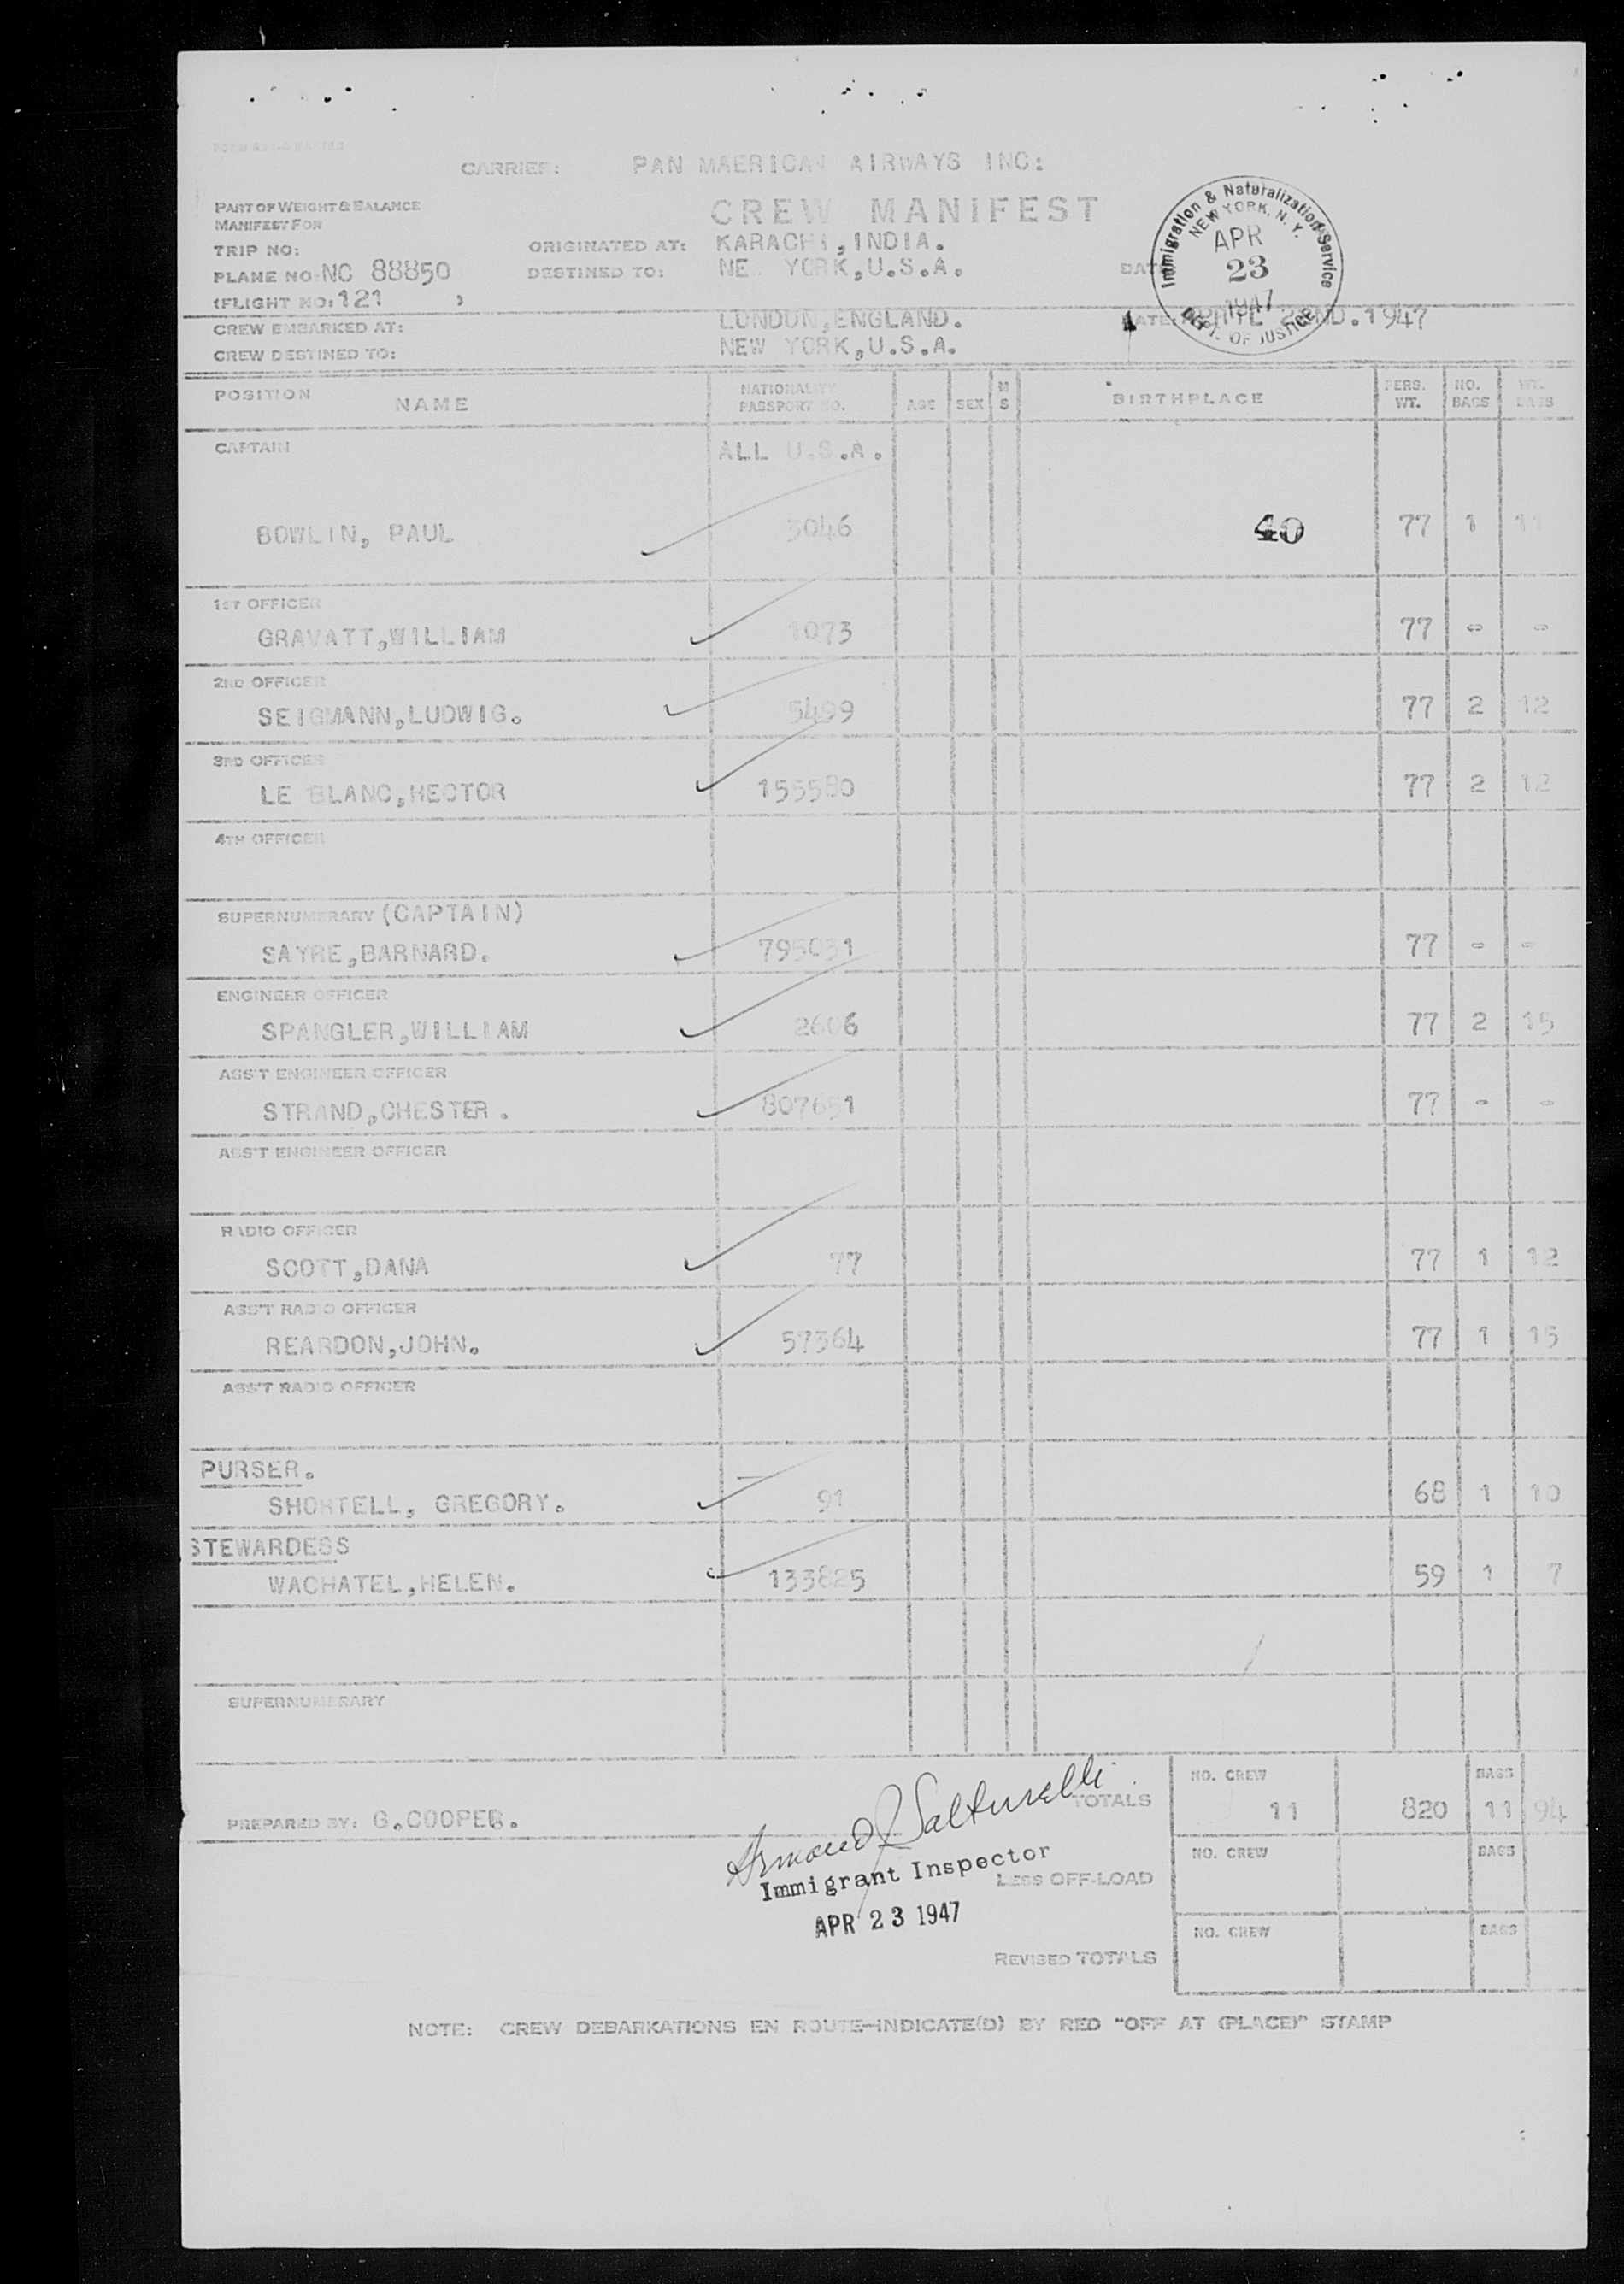 CARRIER: PAN MAERICAN AIRWAYS INC:
PART OF WEIGHT & BALANCE
MANIFEST FOR
CREW MANIFEST
Immigration & Naturalization Service
NEW YORK, N. Y.
APR
23
1947
DEPT. OF JUSTICE
TRIP NO:
ORIGINATED AT: KARACHI, INDIA.
PLANE NO: NC 88850
DESTINED TO: NE YORK, U.S.A.
(FLIGHT NO: 121 )
CREW EMBARKED AT: LONDON, ENGLAND.
DATE: APRIL 22ND. 1947
CREW DESTINED TO: NEW YORK, U.S.A.
POSITION NAME NATIONALITY PASSPORT NO. AGE SEX M S BIRTHPLACE PERS. WT. NO. BAGS WT. BAGS
CAPTAIN ALL U.S.A.
BOWLIN, PAUL 3046 40 77 1 11
1ST OFFICER
GRAVATT, WILLIAM 1073 77 - -
2ND OFFICER
SEIGMANN, LUDWIG. 5499 77 2 12
3RD OFFICER
LE BLANC, HECTOR 155580 77 2 12
4TH OFFICER
SUPERNUMERARY (CAPTAIN)
SAYRE, BARNARD. 795031 77 - -
ENGINEER OFFICER
SPANGLER, WILLIAM 2606 77 2 15
ASS'T ENGINEER OFFICER
STRAND, CHESTER. 807651 77 - -
ASS'T ENGINEER OFFICER
RADIO OFFICER
SCOTT, DANA 77 77 1 12
ASS'T RADIO OFFICER
REARDON, JOHN. 57364 77 1 15
ASS'T RADIO OFFICER
PURSER.
SHORTELL, GREGORY. 91 68 1 10
STEWARDESS
WACHATEL, HELEN. 133825 59 1 7
SUPERNUMERARY
PREPARED BY: G. COOPER.
TOTALS NO. CREW 11 820 BAGS 11 94
Immigrant Inspector
LESS OFF-LOAD NO. CREW BAGS
APR 23 1947
REVISED TOTALS NO. CREW BAGS
NOTE: CREW DEBARKATIONS EN ROUTE—INDICATE(D) BY RED "OFF AT (PLACE)" STAMP